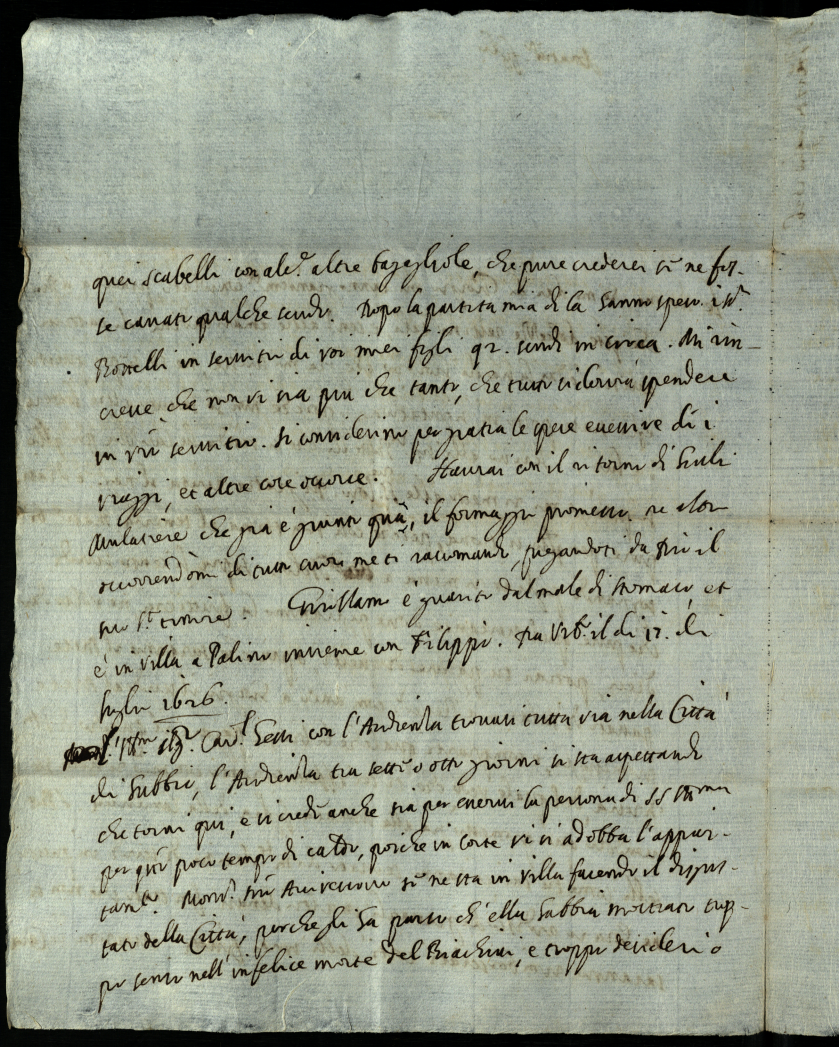 quei scabelli con alc.e altre bagagliole, che pure crederei se ne fos-
se cavato qualche scudo. Dopo la partita mia di la hanno speso i s.ri
Roccelli in servitio di voi miei figli 92. scudi in circa. Mi rin-
cresce che non vi sia piu che tanto, che tutto si dovria spendere
in vro servitio. Si considerino per gratia le spese eccessive di i
viaggi, et altre cose occorse. Haurai con il ritorno di
Mulatiere che gia è giunto quà, il formaggio promesso, se altro
occorrendomi di tutto cuore me ti racomando, pregandoti da Dio il
suo s.to timore. Girollamo è guarito dal male di stomaco, et
è in villa a Palino insieme con Filippo. Da Urb.o il di 17. di
luglio 1626.
l'Ill.mo Sig.r Card.l Gessi con l'Audienza trovasi tutta via nella Città
di Gubbio, l'Audienza tra sette o otto giorni si sta aspettando
che torni qui, e si crede anche sia per esservi la persona di SS Ill.ma
per qsto poco tempo di caldo, poiche in Corte vi si addobba l'appar-
tam.to Mons.r nro Arcivescovo se ne sta in villa facendo il disgus-
tato della Città, perche gli ha parso ch'ella habbia mostrato trop-
po senso nell'infelice morte del Biachini, e troppo desiderio